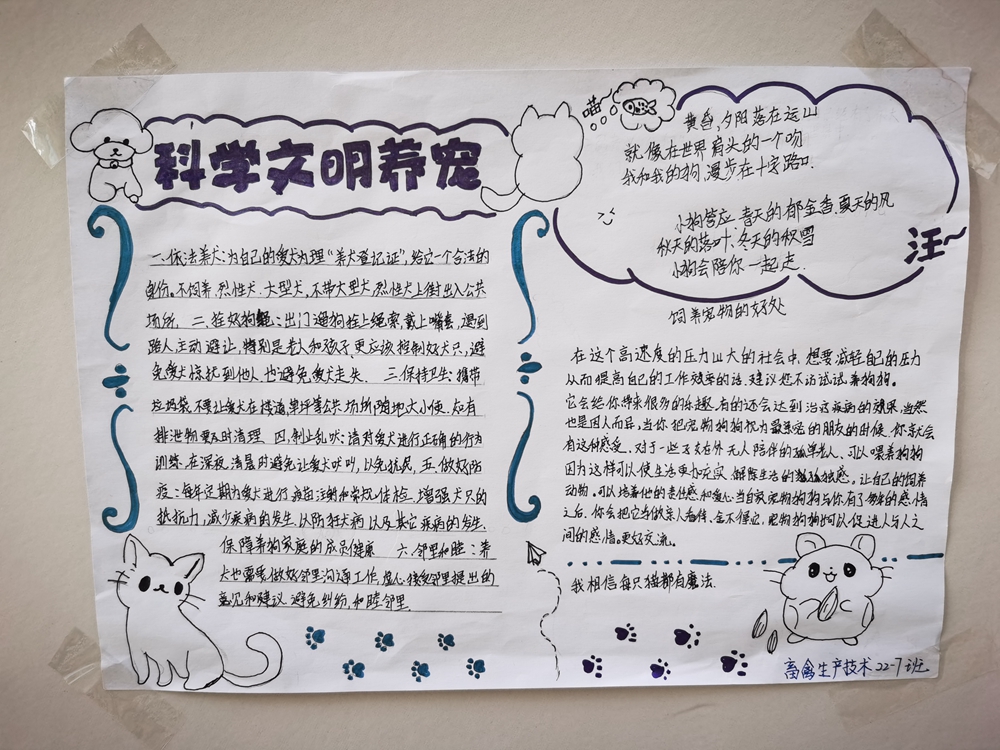 科学文明养宠
一、依法养犬：为自己的爱犬办理“养犬登记证”，给它一个合法的
身份。不饲养烈性犬、大型犬，不带大型犬、烈性犬上街出入公共
场所。二、拴好狗绳：出门遛狗拴上绳索，戴上嘴套，遇到
路人主动避让，特别是老人和孩子，更应该控制好犬只，避
免爱犬惊扰到他人，也避免爱犬走失。三、保持卫生：携带
垃圾袋，不要让爱犬在楼道、草坪等公共场所随地大小便，如有
排泄物要及时清理。四、制止乱吠：请对爱犬进行正确的行为
训练，在深夜、清晨时避免让爱犬吠叫，以免扰民。五、做好防
疫：每年定期为爱犬进行疫苗注射和常规体检，增强犬只的
抵抗力，减少疾病的发生，以防狂犬病以及其它疾病的发生，
保障养狗家庭的成员健康 六、邻里和睦：养
犬也需要做好邻里沟通工作，虚心接受邻里提出的
意见和建议，避免纠纷，和睦邻里
喵
黄昏，夕阳落在远山
就像在世界肩头的一个吻
我和我的狗，漫步在十字路口.
小狗答应，春天的郁金香，夏天的风
秋天的落叶、冬天的积雪
小狗会陪你一起走.
汪~
饲养宠物的好处
在这个高速度的压力山大的社会中，想要减轻自己的压力
从而提高自己的工作效率的话，建议您不访试试养狗狗。
它会给你带来很多的乐趣，有的还会达到治疗疾病的效果，当然
也是因人而异，当你把宠物狗狗视为最亲密的朋友的时候，你就会
有这种感受。对于一些子女在外无人陪伴的孤单老人，可以喂养狗狗
因为这样可以使生活更加充实，解除生活的孤独感。让自己的饲养
动物，可以培养他的责任感和爱心，当自家宠物狗狗与你有了的感情
之后，你会把它当做亲人看待、舍不得它，宠物狗狗可以促进人与人之
间的感情，更好交流。
我相信每只猫都有魔法.
畜禽生产技术22-7班